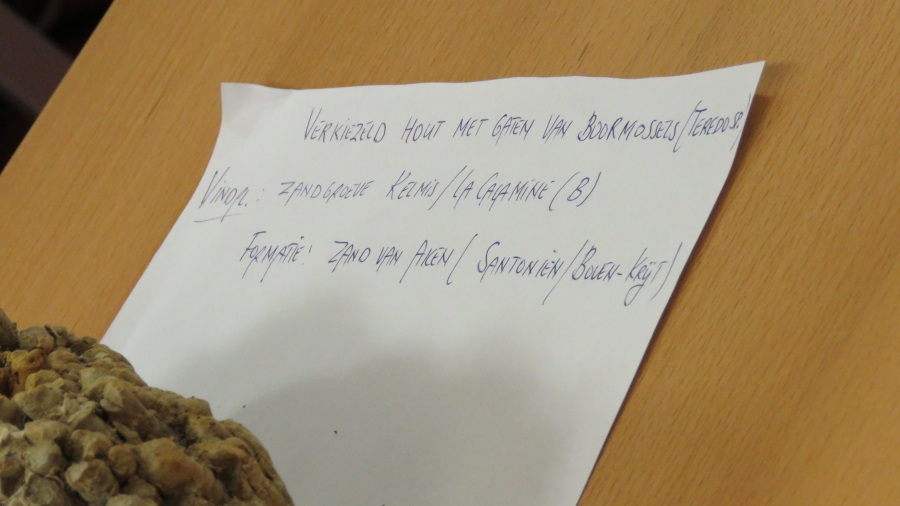 VERKIEZELD HOUT MET GATEN VAN BOORMOSSELS (TEREDOS?
VINDPL: ZANDGROEVE KELMIS/LA CALAMINE (B)
FORMATIE: ZAND VAN AKEN (SANTONIËN/BOVEN-KRIJT)